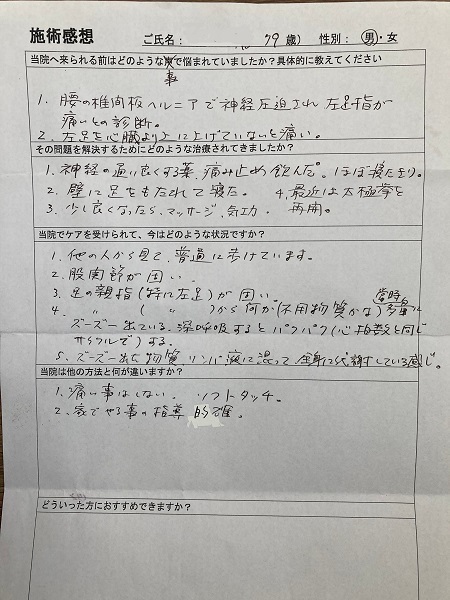 施術感想 ご氏名： 79歳） 性別：男・女
当院へ来られる前はどのような事で悩まれていましたか？具体的に教えてください
1. 腰の椎間板ヘルニアで神経圧迫され 左足指が
痛いとの診断。
2. 左足を心臓より上に上げていないと痛い。
その問題を解決するためにどのような治療されてきましたか？
1. 神経の通い良くする薬、痛み止め飲んだ。ほぼ寝たきり。
2. 壁に足をもたれて寝た。 4. 最近は太極拳を
3. 少し良くなったら、マッサージ、気功、 再開。
当院でケアを受けられて、今はどのような状況ですか？
1. 他の人から見て、普通に歩けています。
2. 股関節が固い、
3. 足の親指（特に左足）が固い。 当時
4. 〃 （ 〃 ）から何か（不用物質かな）多量に
ズーズー出ている。深呼吸するとパクパク（心拍数と同じ
サイクルで）する。
5. ズーズー出た物質、リンパ液に混って全身に代謝している感じ。
当院は他の方法と何が違いますか？
1. 痛い事はしない、ソフトタッチ。
2. 家でやる事の指導 的確。
どういった方におすすめできますか？